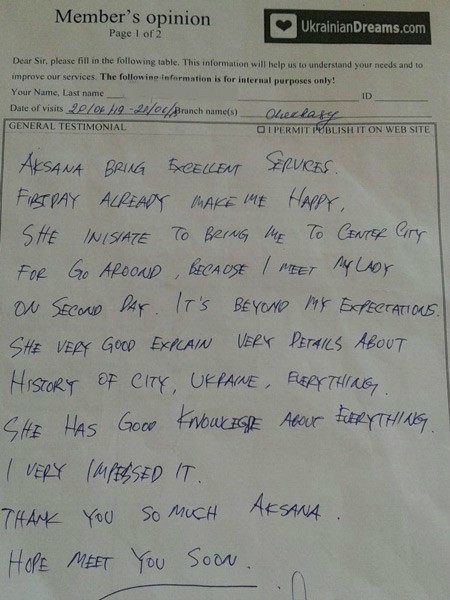 Member's opinion
Page 1 of 2
UkrainianDreams.com
Dear Sir, please fill in the following table. This information will help us to understand your needs and to
improve our services. The following information is for internal purposes only!
Your Name, Last name ID
Date of visits 20/06/19 - 21/06/19 Branch name(s) Cherkasy
GENERAL TESTIMONIAL
I PERMIT PUBLISH IT ON WEB SITE
AKSANA BRING EXCELLENT SERVICES.
FIRSTDAY ALREADY MAKE ME HAPPY,
SHE INISIATE TO BRING ME TO CENTER CITY
FOR GO AROOND, BECAUSE I MEET MY LADY
ON SECOND DAY. IT'S BEYOND MY EXPECTATIONS.
SHE VERY GOOD EXPLAIN VERY DETAILS ABOUT
HISTORY OF CITY, UKRAINE, EVERYTHING.
SHE HAS GOOD KNOWLEGDE ABOUT EVERYTHING.
I VERY IMPRESSED IT.
THANK YOU SO MUCH AKSANA.
HOPE MEET YOU SOON.